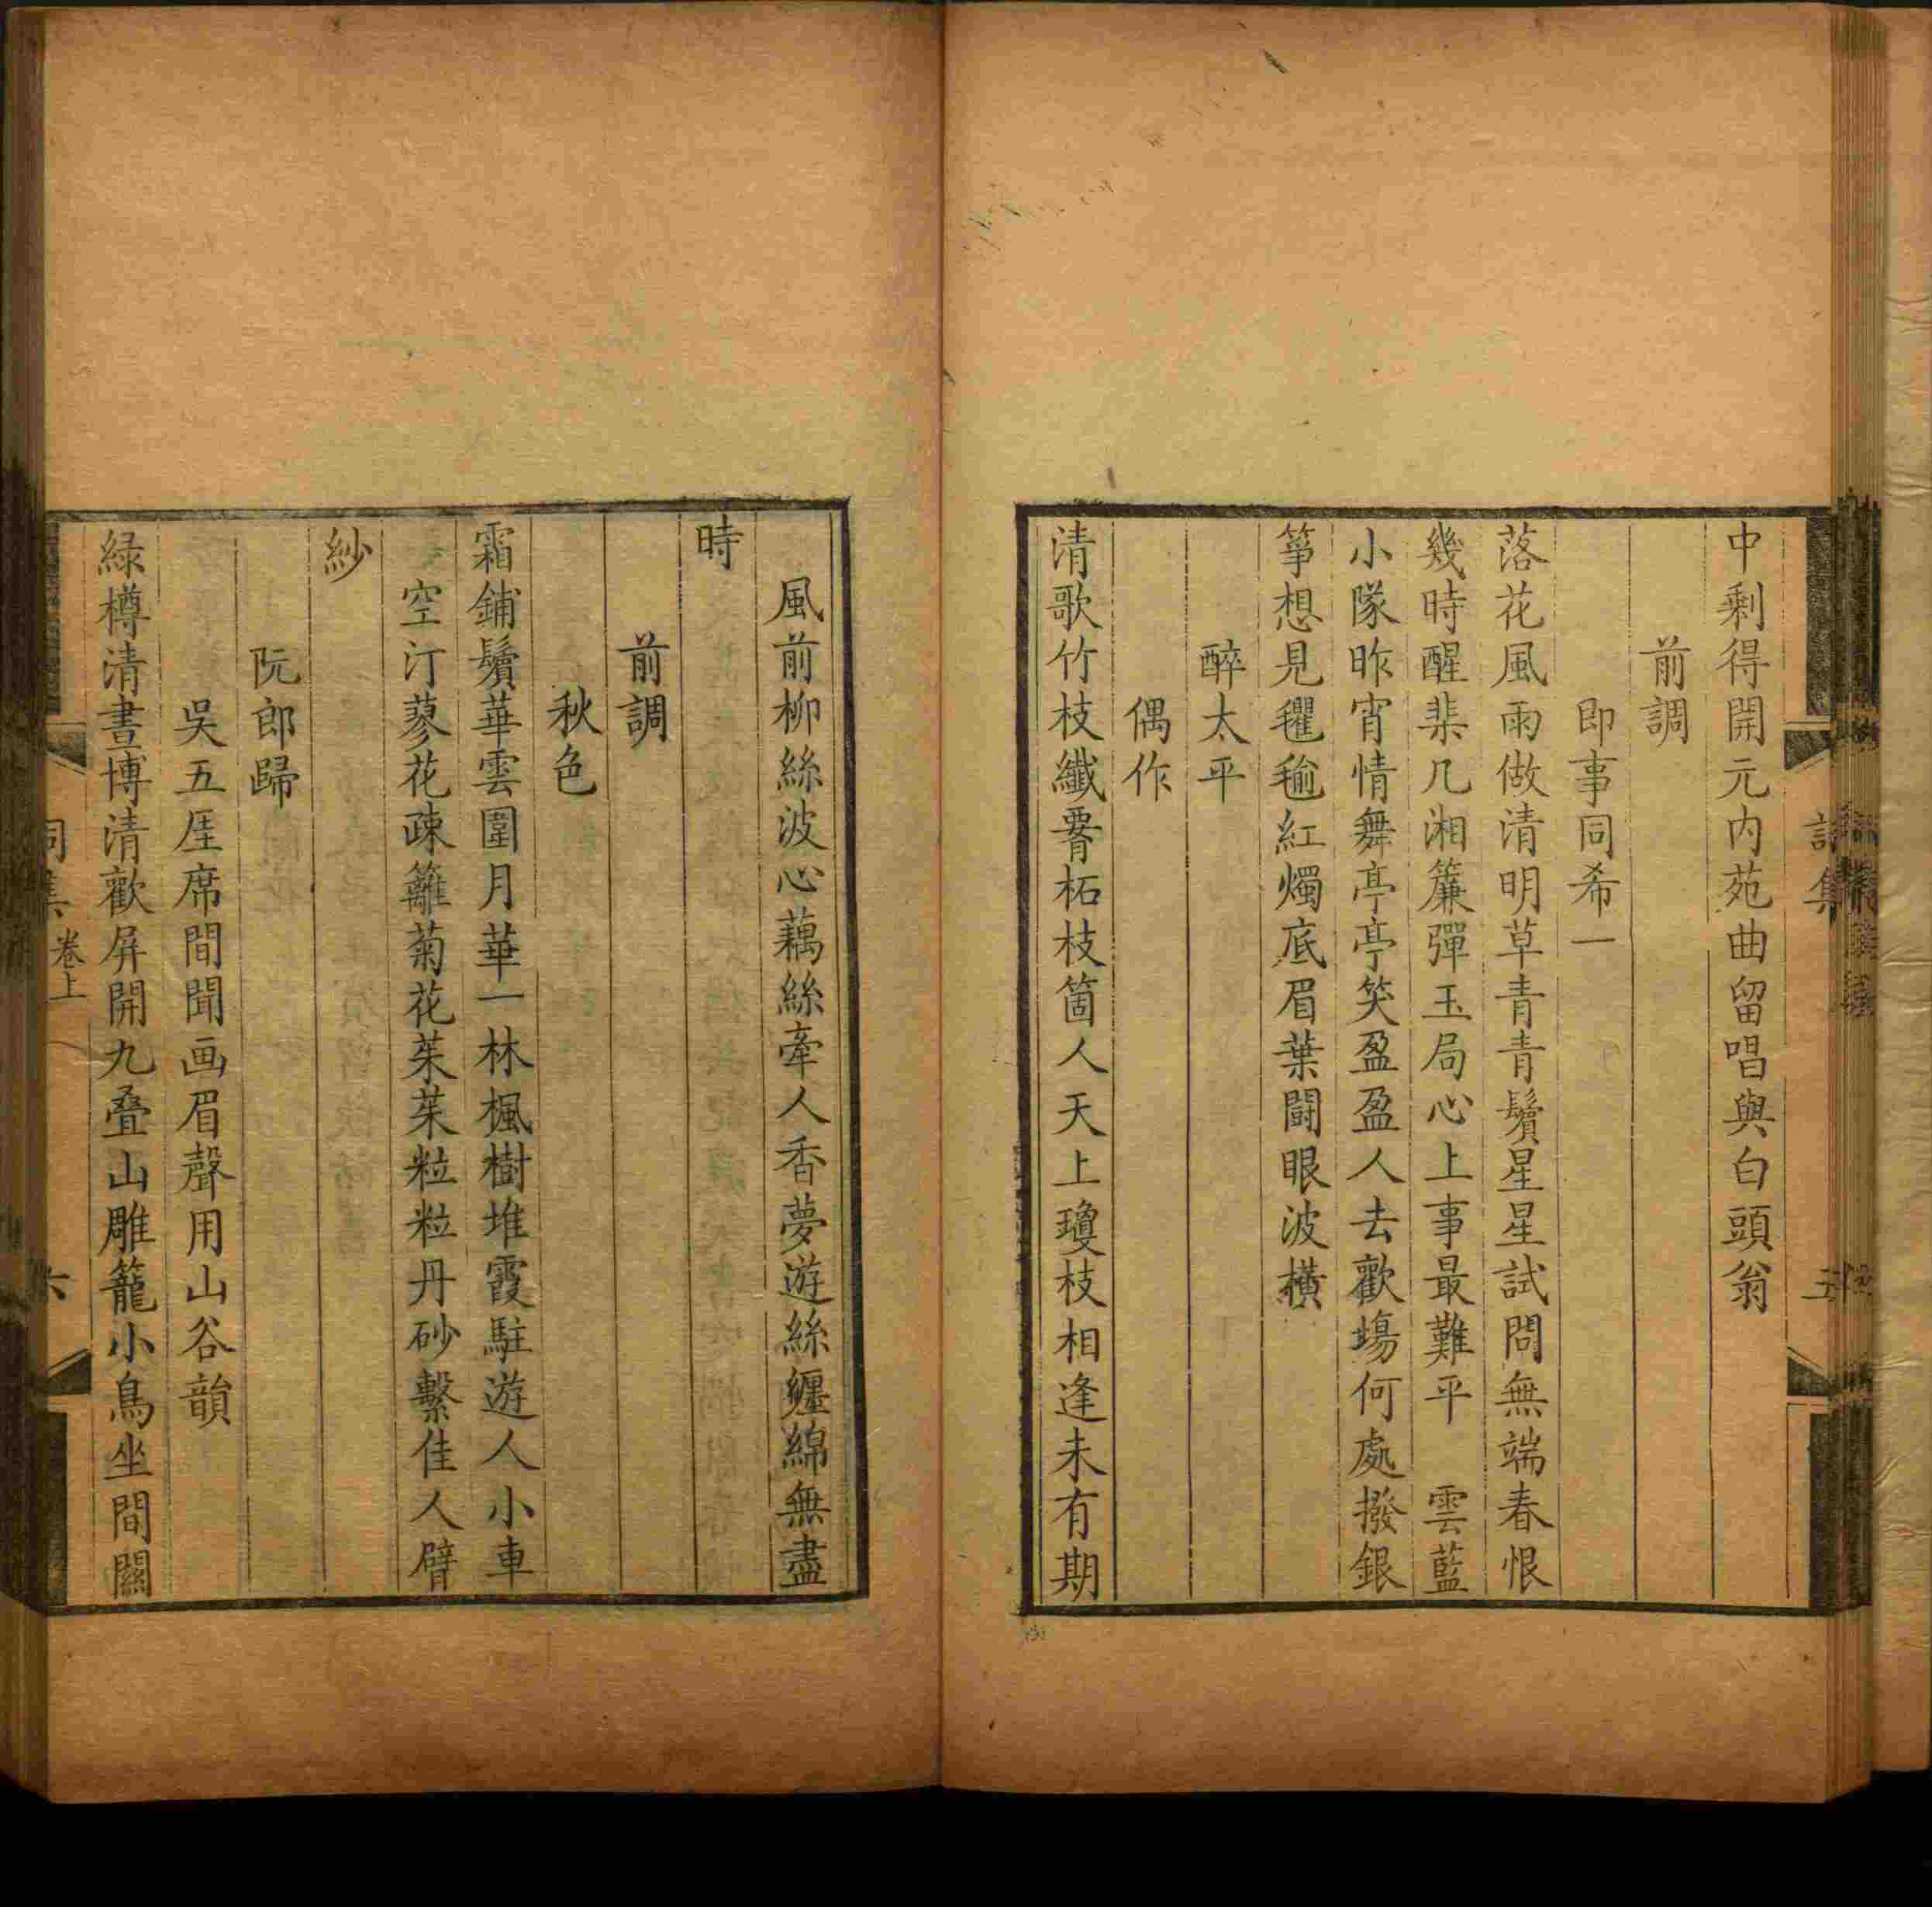 中剩得開元内苑曲留唱與白頭翁
前調
即事同希一
落花風雨做清明草青青鬢星星試問無端春恨
幾時醒棐几湘簾彈玉局心上事最難平　雲藍
小隊昨宵情舞亭亭笑盈盈人去歡場何處撥銀
箏想見氍毹紅燭底眉葉鬬眼波橫
醉太平
偶作
清歌竹枝纖䯒柘枝箇人天上瓊枝相逢未有期
風前柳絲波心藕絲牽人香夢遊絲纏綿無盡
時
前調
秋色
霜鋪鬢華雲圍月華一林楓樹堆霞駐遊人小車
空汀蓼花疎籬菊花茱茱粒粒丹砂繫佳人臂
紗
阮郎歸
吳五厓席間聞画眉聲用山谷韻
緑樽清晝博清歡屏開九叠山雕籠小鳥坐間關
卷上
六